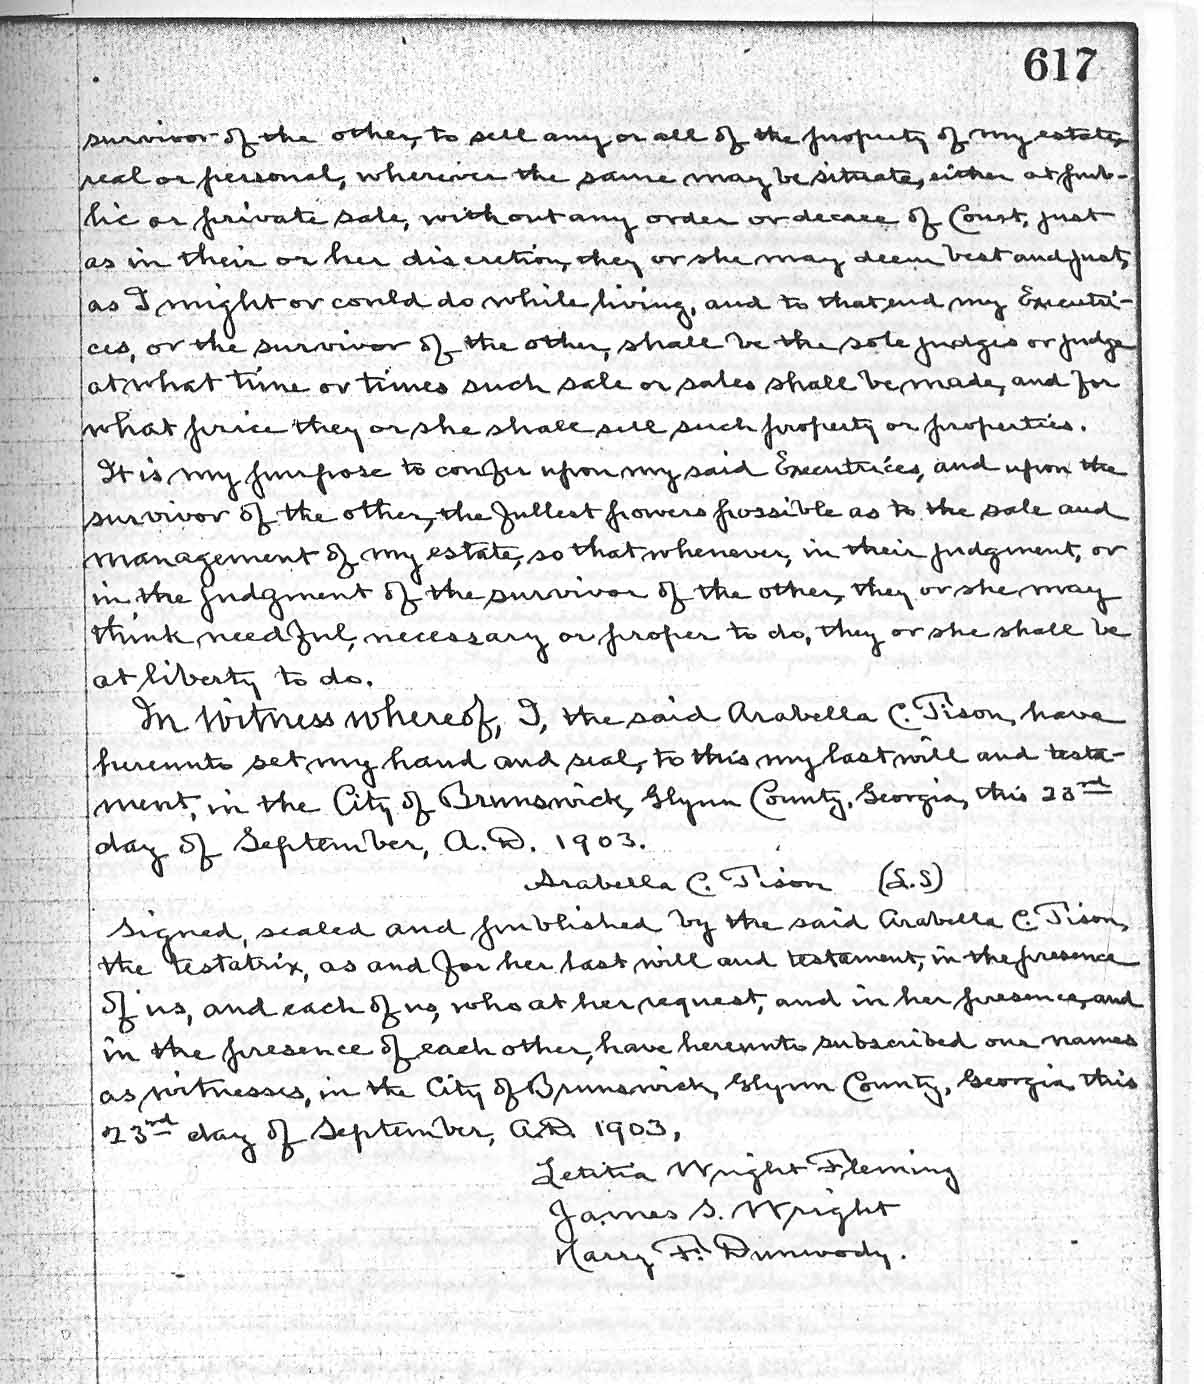 617
survivor of the other, to sell any or all of the property of my estate,
real or personal, wherever the same may be situate, either at pub-
lic or private sale, without any order or decree of Court, just
as in their or her discretion, they or she may deem best and just,
as I might or could do while living, and to that end my Executri-
ces, or the survivor of the other, shall be the sole judges or judge
at what time or times such sale or sales shall be made, and for
what price they or she shall sell such property or properties.
It is my purpose to confer upon my said Executrices, and upon the
survivor of the other, the fullest powers possible as to the sale and
management of my estate, so that whenever, in their judgment, or
in the judgment of the survivor of the other, they or she may
think needful, necessary or proper to do, they or she shall be
at liberty to do.
In Witness whereof, I, the said Arabella C. Tison, have
hereunto set my hand and seal, to this my last will and testa-
ment, in the City of Brunswick, Glynn County, Georgia, this 23rd
day of September, A.D. 1903.
Arabella C. Tison (L.S)
Signed, sealed and published by the said Arabella C. Tison,
the testatrix, as and for her last will and testament, in the presence
of us, and each of us, who at her request, and in her presence, and
in the presence of each other, have hereunto subscribed our names
as witnesses, in the City of Brunswick, Glynn County, Georgia, this
23rd day of September, A.D. 1903,
Letitia Wright Fleming
James S. Wright
Harry F. Dunwody.